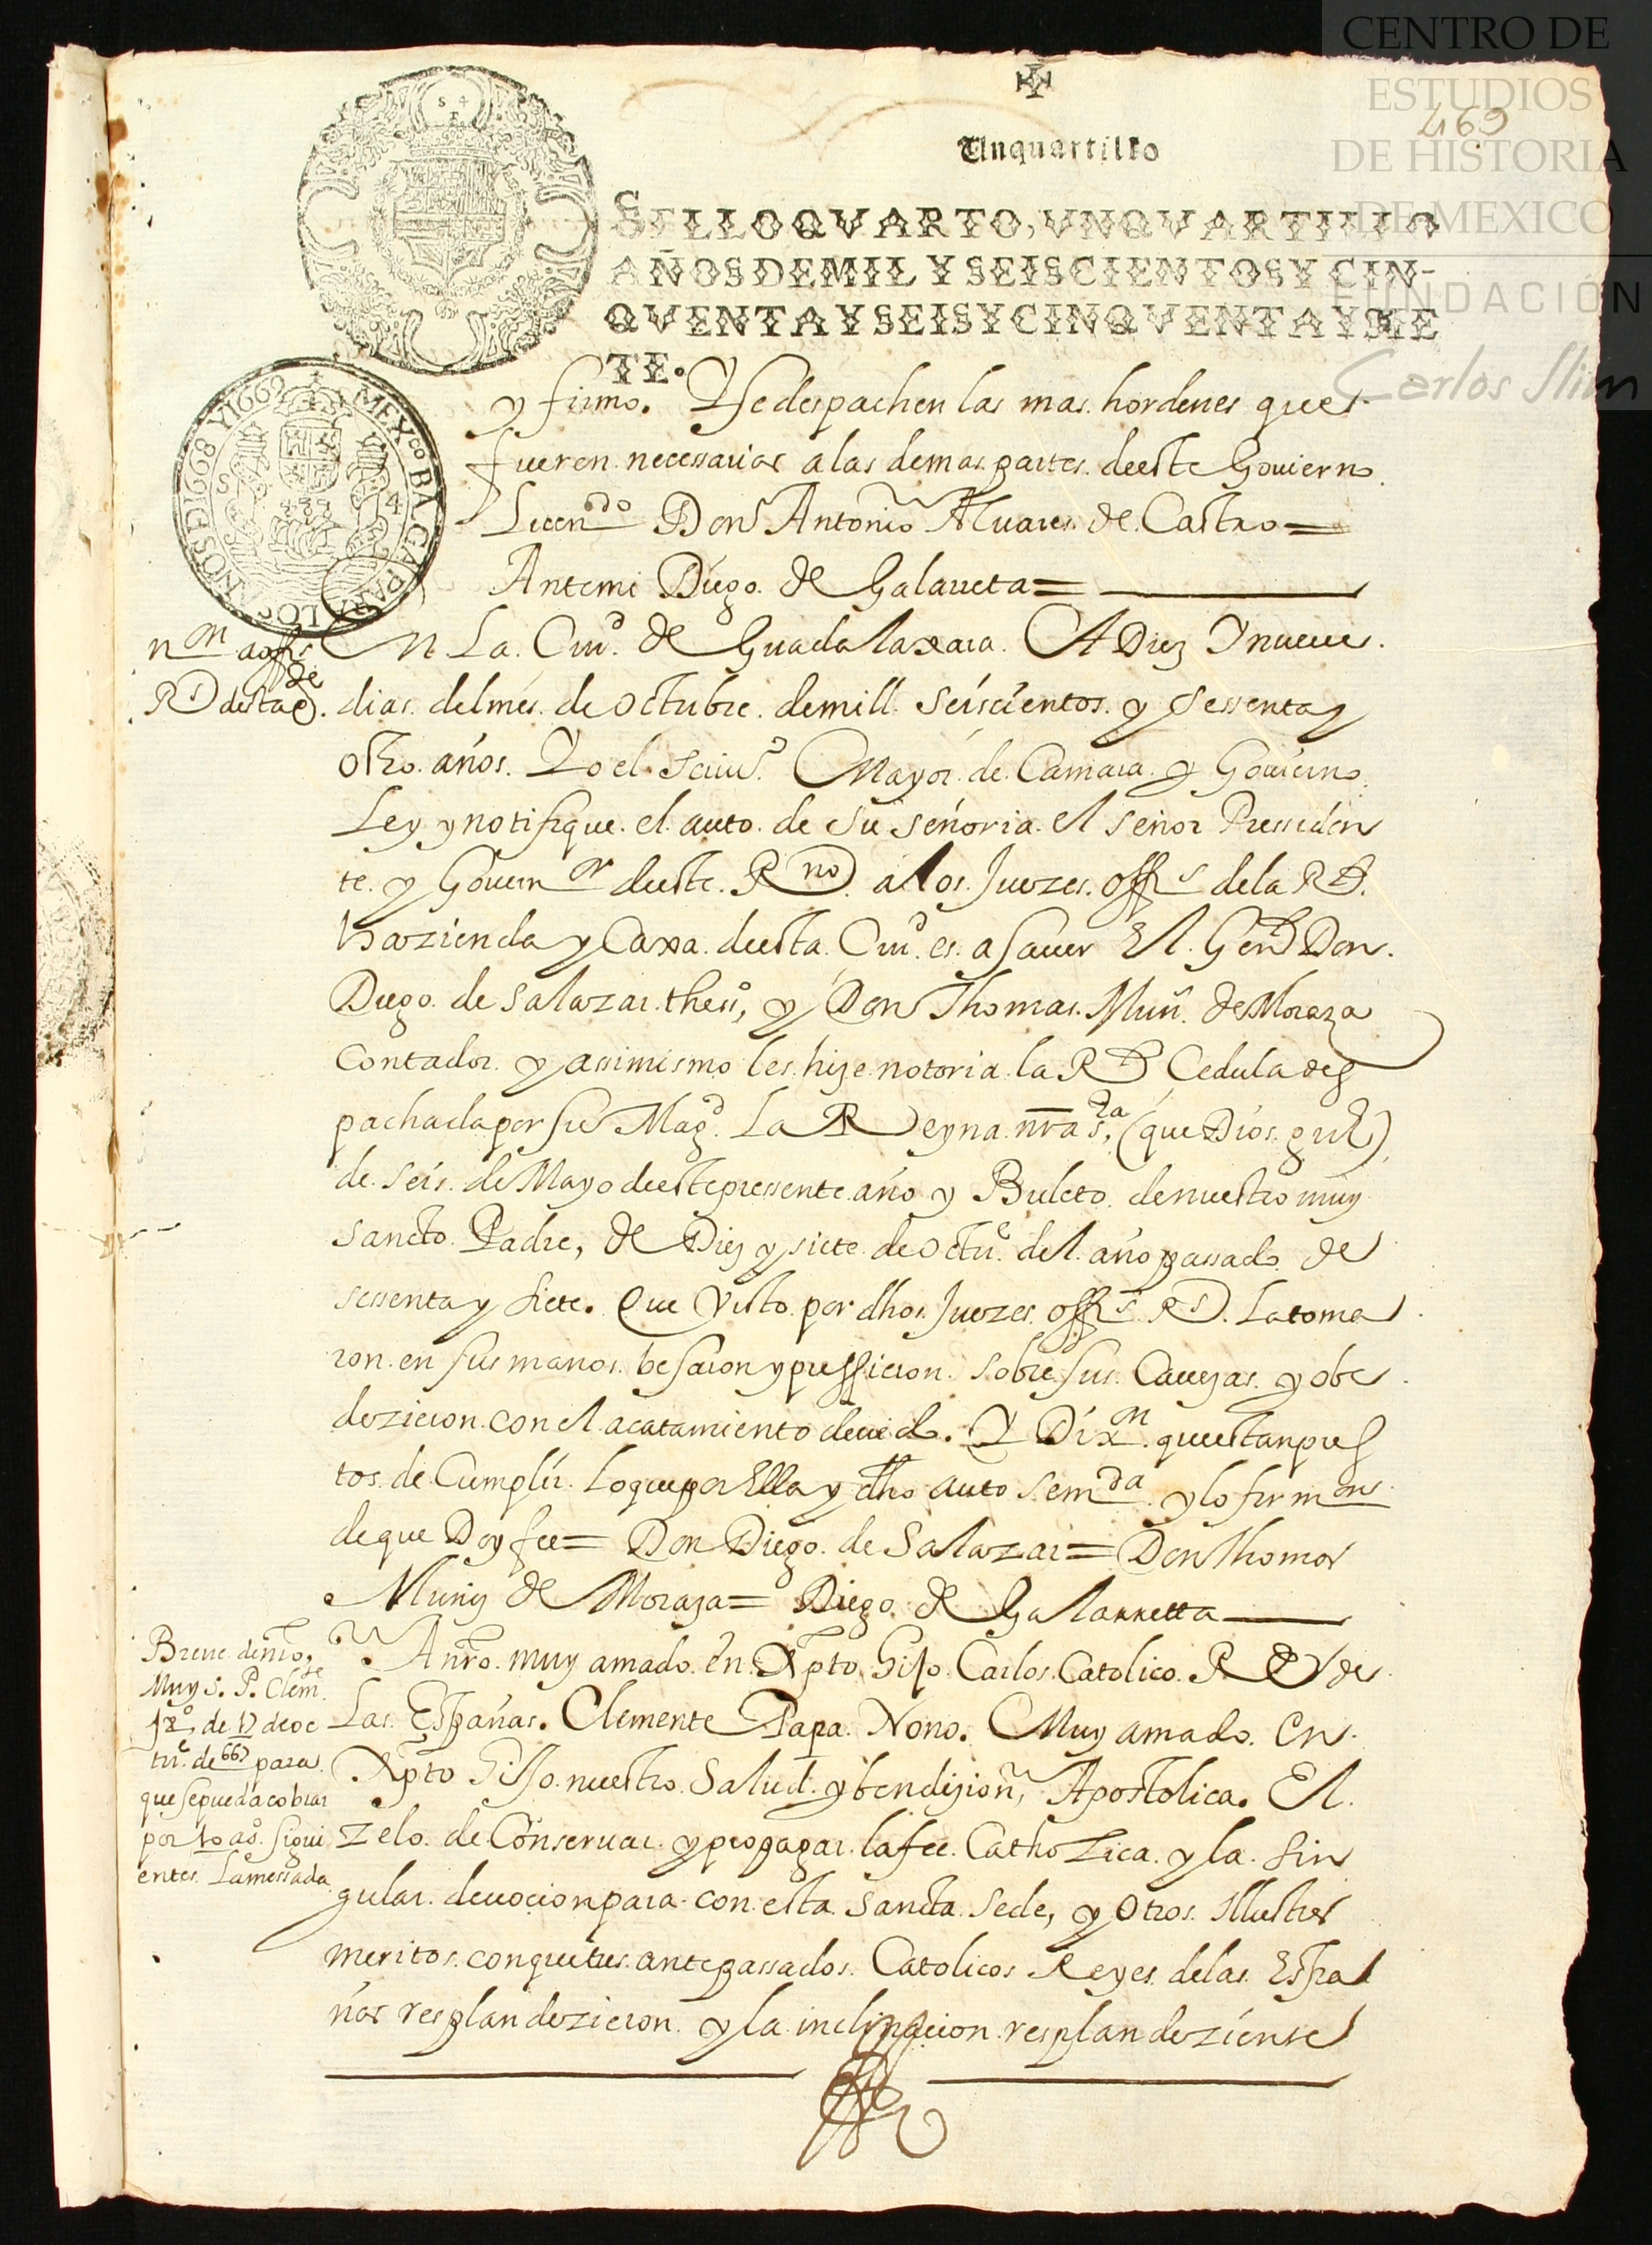 CENTRO DE
ESTUDIOS
DE HISTORIA
DE MEXICO
FUNDACIÓN
Carlos Slim
469
Un quartillo
SELLO QVARTO, VN QVARTILLO
AÑOS DE MIL Y SEISCIENTOS Y CIN-
QVENTA Y SEIS Y CINQVENTA Y SIE
TE.
S 4
MEXco BA GA PARA LOS AÑOS DE 1668 Y 1669
S 4
y firmo. Y se despachen las mas hordenes que
fueren necessarias a las demas partes deeste Gouierno
Licendo Don Antonio Aluares de Castro =
Antemi Diego de Galarreta =
non a offs
Rs desta
En La Ciud de Guadalaxara A Diez Y nueue
dias del mes de Octubre de mill seiscientos y sessenta y
ocho años. Yo el Scriuo Mayor de Camara y Gouierno
Ley y notifique el auto de su señoria el señor Presiden
te y Gouernor deeste Rno a los Juezes offs de la Rl
hazienda y Caxa deesta Ciud es a sauer El Genl Don
Diego de Salazar theso, y Don Thomas Muñ de Moraza
Contador y assimismo les hize notoria la Rl Cedula des
pachada por su Magd La Reyna nra sra, (que Dios gue)
de seis de Mayo deeste pressente año y Buleto de nuestro muy
sancto Padre, de Diez y siete de Octue del año passado de
sessenta y siete. Que Visto por dhos Juezes offs Rs La toma
ron en sus manos besaron y pussieron sobre sus Cauezas y obe
dezieron con el acatamiento deuido. Y Dixon que estan pres
tos de Cumplir lo que por Ella y dho auto se mda y lo firmon
de que Doy fee = Don Diego de Salazar = Don Thomas
Muñiz de Moraza = Diego de Galarretta
Breue de nro
Muy S. P. Clemte
9o, de 17 de oc
tue de 667 para
que se pueda cobrar
por 10 as sigui
entes La messada
A nro muy amado en Xpto Hijo Carlos Catolico Rey de
Las Españas. Clemente Papa Nono. Muy amado en
Xpto Hijo nuestro Salud y bendizion, Apostolica. El
zelo de Conseruar y propagar la fee Catholica y la sin
gular deuocion para con esta Sancta Sede, y Otros Illustres
meritos con que tus antepassados Catolicos Reyes de las Espa
ñas resplandezieron y la inclinacion resplandeziente